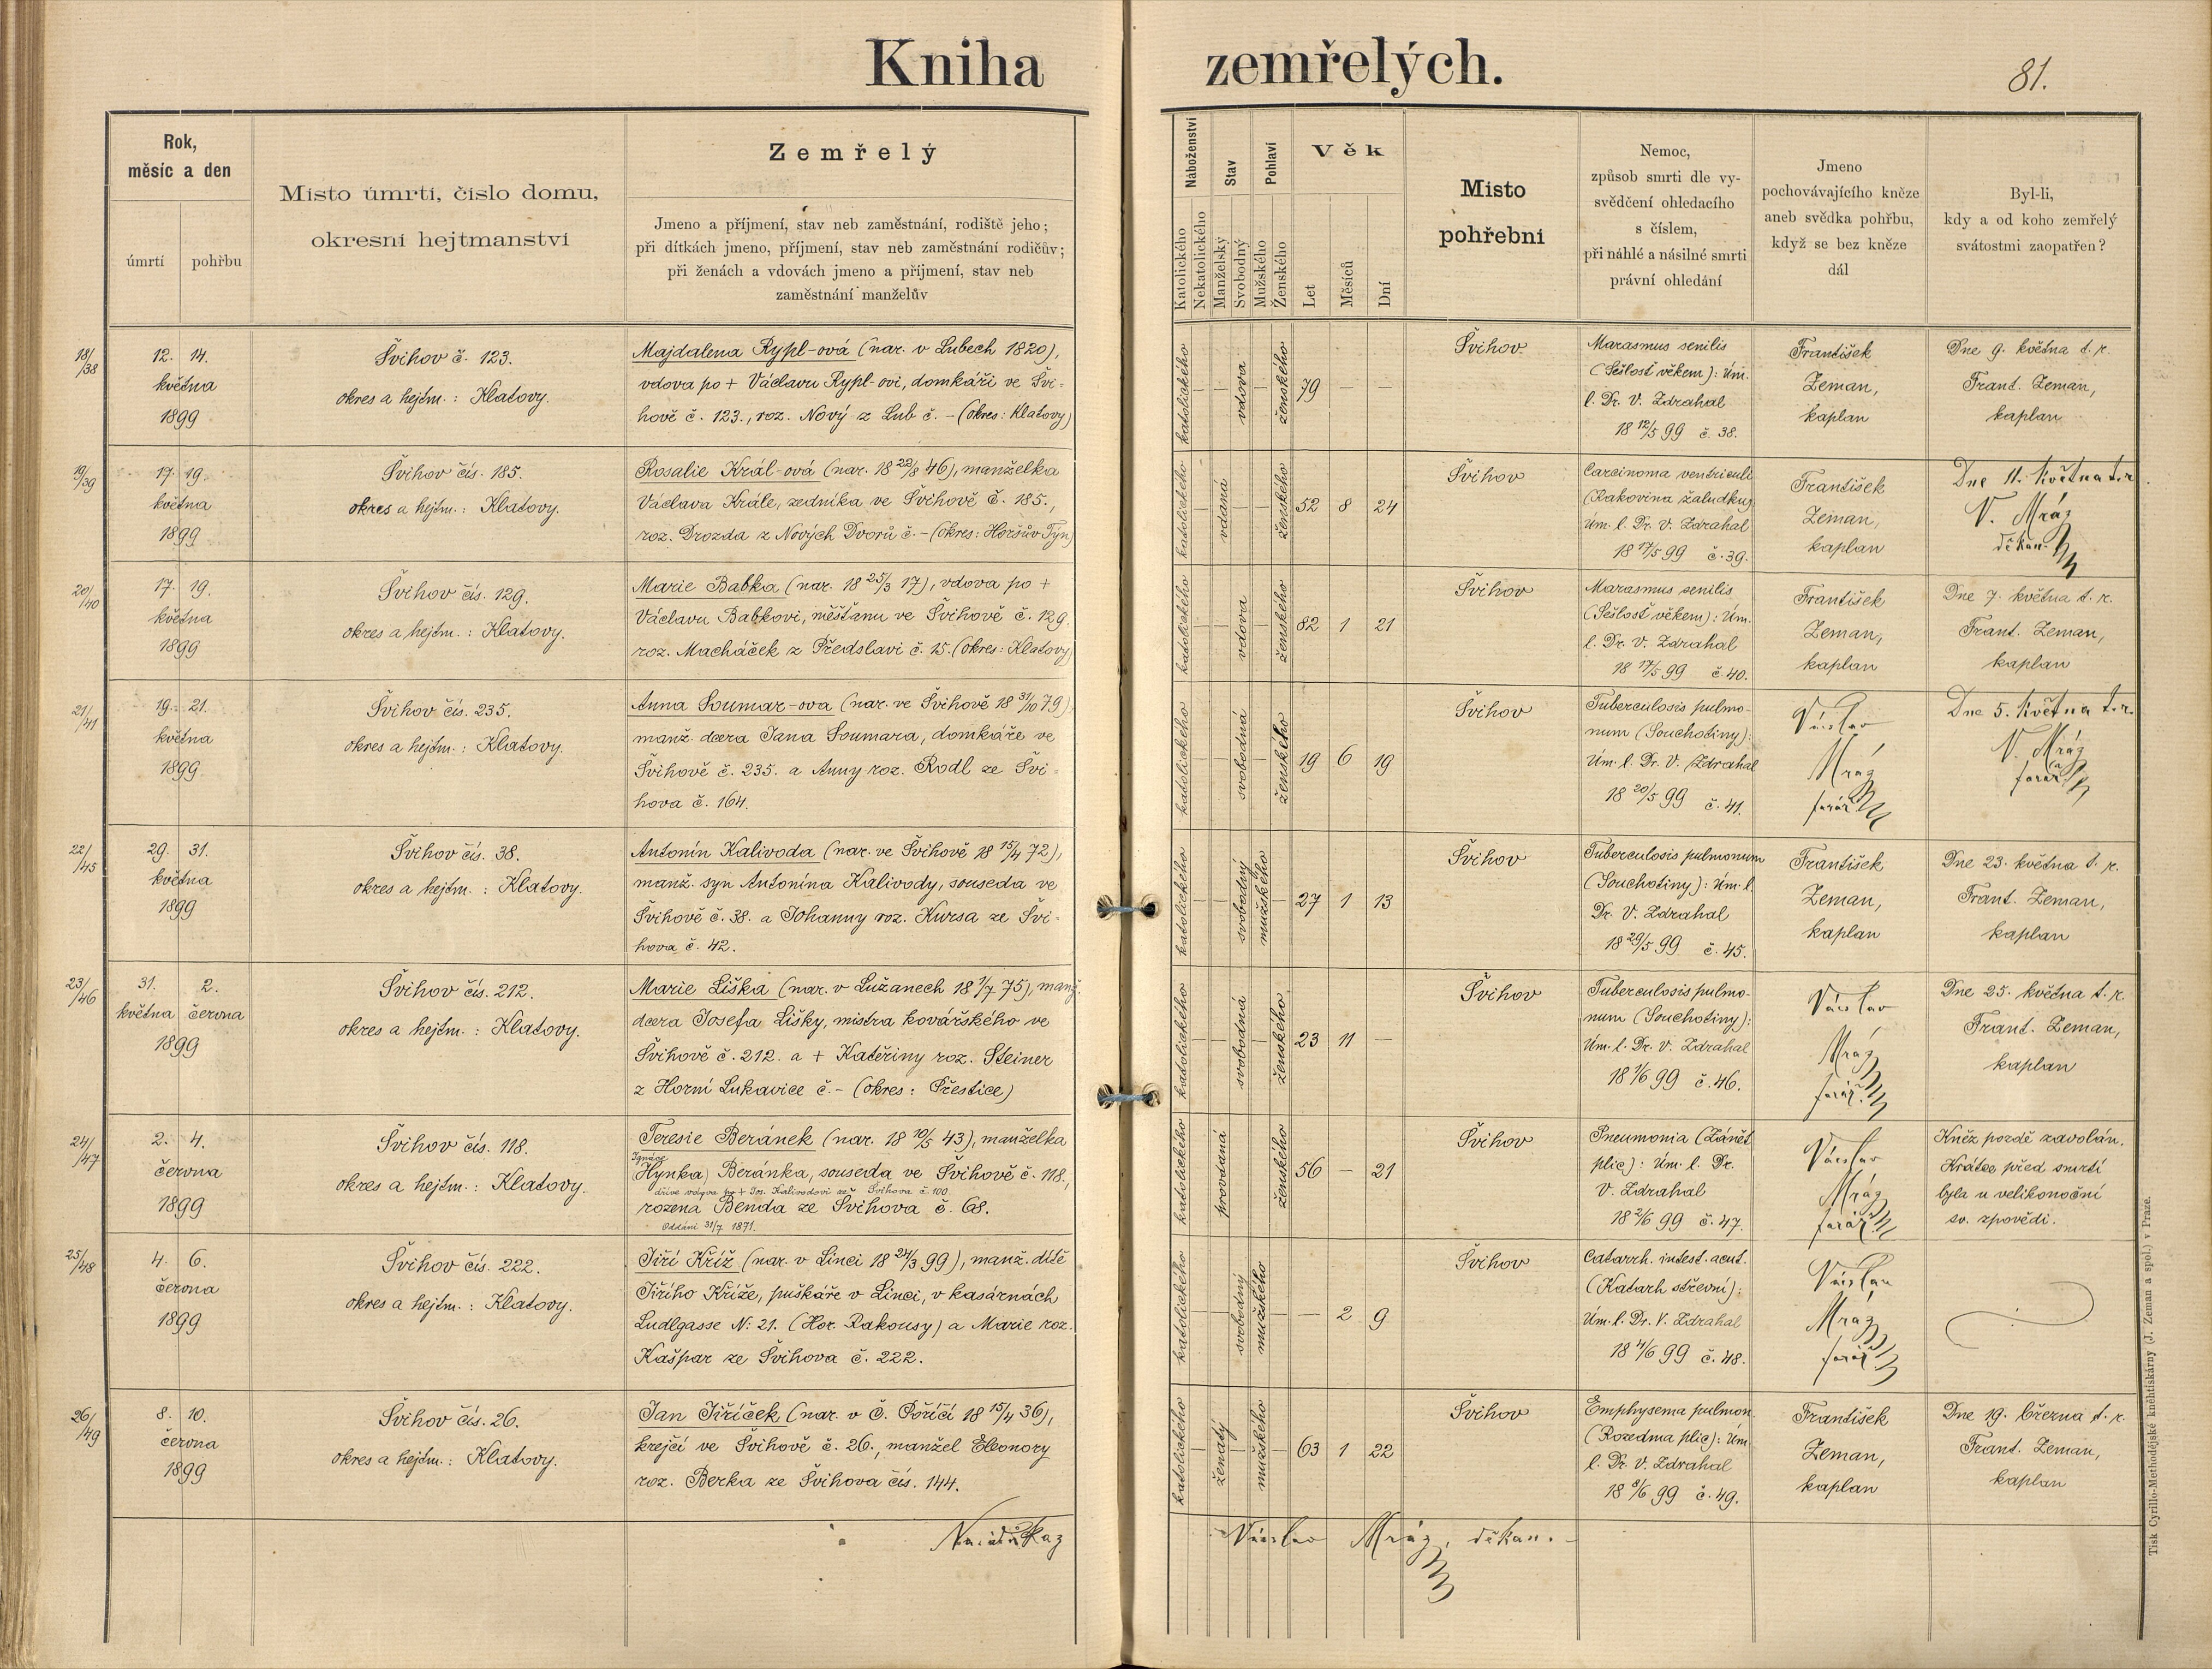 Kniha zemřelých.
81.
Rok,
měsíc a den
úmrtí
pohřbu
Místo úmrtí, číslo domu,
okresní hejtmanství
Zemřelý
Jmeno a příjmení, stav neb zaměstnání, rodiště jeho;
při dítkách jmeno, příjmení, stav neb zaměstnání rodičův;
při ženách a vdovách jmeno a příjmení, stav neb
zaměstnání manželův
Náboženství
Katolického
Nekatolického
Stav
Manželský
Svobodný
Pohlaví
Mužského
Ženského
Věk
Let
Měsíců
Dní
Místo
pohřební
Nemoc,
způsob smrti dle vy-
svědčení ohledacího
s číslem,
při náhlé a násilné smrti
právní ohledání
Jmeno
pochovávajícího kněze
aneb svědka pohřbu,
když se bez kněze
dál
Byl-li,
kdy a od koho zemřelý
svátostmi zaopatřen?
18/38
12. 14.
května
1899
Švihov č. 123.
okres a hejtm.: Klatovy.
Majdalena Rypl-ová (nar. v Lubech 1820),
vdova po + Václavu Rypl-ovi, domkáři ve Švi-
hově č. 123., roz. Nový z Lub č. - (okres: Klatovy)
katolického
vdova
ženského
79 — —
Švihov
Marasmus senilis
(Sešlost věkem): Úm.
l. Dr. V. Zdrahal
18 12/5 99 č. 38.
František
Zeman,
kaplan
Dne 9. května t. r.
Frant. Zeman,
kaplan
19/39
17. 19.
května
1899
Švihov čís. 185.
okres a hejtm.: Klatovy.
Rosalie Král-ová (nar. 18 22/8 46), manželka
Václava Krále, zedníka ve Švihově č. 185.,
roz. Drozda z Nových Dvorů č. - (okres: Horšův Týn)
katolického
vdaná
ženského
52 8 24
Švihov
Carcinoma ventriculi
(Rakovina žaludku)
Úm. l. Dr. V. Zdrahal
18 17/5 99 č. 39.
František
Zeman,
kaplan
Dne 11. května t. r.
V. Mráz
děkan.
20/40
17. 19.
května
1899
Švihov čís. 129.
okres a hejtm.: Klatovy.
Marie Babka (nar. 18 25/3 17), vdova po +
Václavu Babkovi, měšťanu ve Švihově č. 129.
roz. Macháček z Předslavi č. 15. (okres: Klatovy)
katolického
vdova
ženského
82 1 21
Švihov
Marasmus senilis
(Sešlosť věkem): Úm.
l. Dr. V. Zdrahal
18 17/5 99 č. 40.
František
Zeman,
kaplan
Dne 7. května t. r.
Frant. Zeman,
kaplan
21/41
19. 21.
května
1899
Švihov čís. 235.
okres a hejtm.: Klatovy.
Anna Soumar-ova (nar. ve Švihově 18 31/10 79)
manž. dcera Jana Soumara, domkáře ve
Švihově č. 235. a Anny roz. Rodl ze Švi-
hova č. 164.
katolického
svobodná
ženského
19 6 19
Švihov
Tuberculosis pulmo-
num (Souchotiny):
Úm. l. Dr. V. Zdrahal
18 20/5 99 č. 41.
Václav
Mráz
farář
Dne 5. května t. r.
V. Mráz
farář
22/45
29. 31.
května
1899
Švihov čís. 38.
okres a hejtm.: Klatovy.
Antonín Kalivoda (nar. ve Švihově 18 15/4 72),
manž. syn Antonína Kalivody, souseda ve
Švihově č. 38. a Johanny roz. Kursa ze Švi-
hova č. 42.
katolického
svobodný
mužského
27 1 13
Švihov
Tuberculosis pulmonum
(Souchotiny): Úm. l.
Dr. V. Zdrahal
18 29/5 99 č. 45.
František
Zeman,
kaplan
Dne 23. května t. r.
Frant. Zeman,
kaplan
23/46
31. 2.
května června
1899
Švihov čís. 212.
okres a hejtm.: Klatovy.
Marie Liška (nar. v Lužanech 18 1/7 75), manž.
dcera Josefa Lišky, mistra kovářského ve
Švihově č. 212. a + Kateřiny roz. Steiner
z Horní Lukavice č. - (okres: Přestice)
katolického
svobodná
ženského
23 11 —
Švihov
Tuberculosis pulmo-
num (Souchotiny):
Úm. l. Dr. V. Zdrahal
18 1/6 99 č. 46.
Václav
Mráz
farář
Dne 25. května t. r.
Frant. Zeman,
kaplan
24/47
2. 4.
června
1899
Švihov čís. 118.
okres a hejtm.: Klatovy.
Teresie Beránek (nar. 18 10/5 43), manželka
Ignáce
Hynka) Beránka, souseda ve Švihově č. 118.,
dříve vdova po + Jos. Kalivodovi ze Švihova č. 100.
rozená Benda ze Švihova č. 68.
Oddáni 31/7 1871.
katolického
provdaná
ženského
56 — 21
Švihov
Pneumonia (Zánět
plic): Úm. l. Dr.
V. Zdrahal
18 2/6 99 č. 47.
Václav
Mráz
farář
Kněz pozdě zavolán.
Krátce před smrtí
byla u velikonoční
sv. zpovědi.
25/48
4. 6.
června
1899
Švihov čís. 222.
okres a hejtm.: Klatovy.
Jiří Kříž (nar. v Linci 18 24/3 99), manž. dítě
Jiřího Kříže, puškáře v Linci, v kasárnách
Ludlgasse N: 21. (Hor. Rakousy) a Marie roz.
Kašpar ze Švihova č. 222.
katolického
svobodný
mužského
— 2 9
Švihov
Catarrh. intest. acut.
(Katarh střevní):
Úm. l. Dr. V. Zdrahal
18 4/6 99 č. 48.
Václav
Mráz
farář
26/49
8. 10.
června
1899
Švihov čís. 26.
okres a hejtm.: Klatovy.
Jan Jiříček (nar. v Č. Poříčí 18 15/4 36),
krejčí ve Švihově č. 26., manžel Eleonory
roz. Berka ze Švihova čís. 144.
katolického
ženatý
mužského
63 1 22
Švihov
Emphysema pulmon.
(Rozedma plic): Úm.
l. Dr. V. Zdrahal
18 8/6 99 č. 49.
František
Zeman,
kaplan
Dne 19. března t. r.
Frant. Zeman,
kaplan
Václav Mráz, děkan.
Tisk Cyrillo-Methodějské knihtiskárny (J. Zeman a spol.) v Praze.